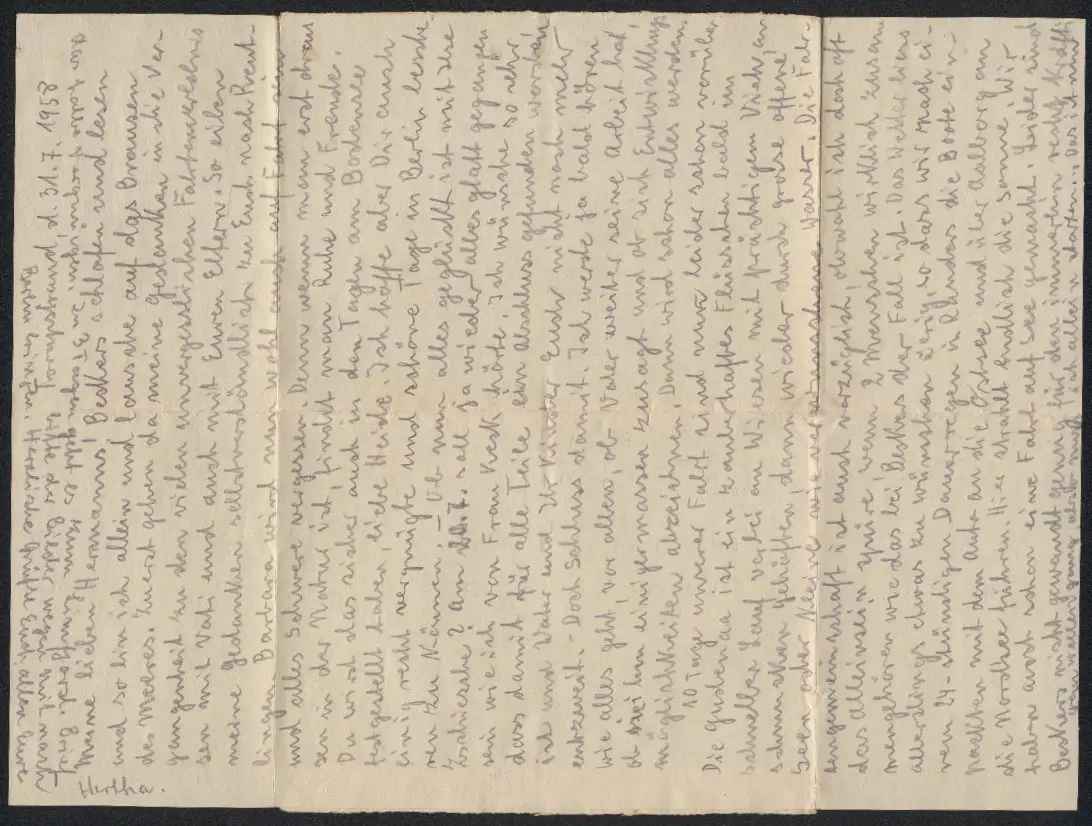 Forangstrand, d. 31.7.1958
Meine lieben Hermanns! Beskers schlafen und lesen
und so bin ich allein und lausche auf das Brausen
des Meeres. Zuerst gehen da meine Gedanken in die Ver-
gangenheit zu den vielen unvergesslichen Fahrtenerlebnis
sen mit Vati und auch mit Euren Eltern. So eilen
meine Gedanken selbstverständlich zu Euch nach Reut-
lingen. Barbara wird nun wohl auch auf Fahrt sein
und alles Schwere vergessen. Denn wenn man erst draus
sen in der Natur ist, findet man Ruhe und Freude.
Du wirst das sicher auch in den Tagen am Bodensee
festgestellt haben, liebe Heide. Ich hoffe aber Dir auch
einig recht vergnügte und schöne Tage in Berlin besche
ren zu können. Ob nun alles geglückt ist mit
? Am 20.7. soll ja wieder alles glatt gegangen
sein wie ich von Frau Keck hörte. Ich wünsche so sehr
dass damit für alle Teile ein Abschluss gefunden worden
ist und Vater und Ihr Kinder Euch nicht noch mehr
entzweit. – Doch Schluss damit. Ich werde ja bald hören
wie alles geht, vor allem, ob Vater weiter seine Arbeit hat,
ob sie ihm einigermassen zusagt und ob sich Entwicklungs
möglichkeiten abzeichnen. Dann wird schon alles werden
10 Tage unserer Fahrt sind nun leider schon vorüber
Die Gudenaa ist ein zauberhaftes Flüsschen bald im
schnellen Lauf vorbei an Wiesen mit prächtigem Vieh an
schmucken Gehöften, dann wieder durch grosse offene
Seen oder kleine wie verwunschene Wasser. Die Fahr-
tengemeinschaft ist auch vorzüglich, obwohl ich doch oft
das Alleinsein spüre wenn 2 Menschen wirklich zusam
mengehören wie das bei Beskers der Fall ist. Das Wetter liess
allerdings etwas zu wünschen übrig, so dass wir nach ei-
nem 24-stündigen Dauerregen in Randers die Boote ein-
packten mit dem Auto an die Ostsee und über Aalborg an
die Nordsee fuhren. Hier strahlt endlich die Sonne. Wir
haben auch schon eine Fahrt auf See gemacht. Leider sind
Beskers nicht gewandt genug für den immerhin recht kräfti
gen Wellengang als dass ich allein starten. Das ist nun
Euch allen Eure
Hertha.